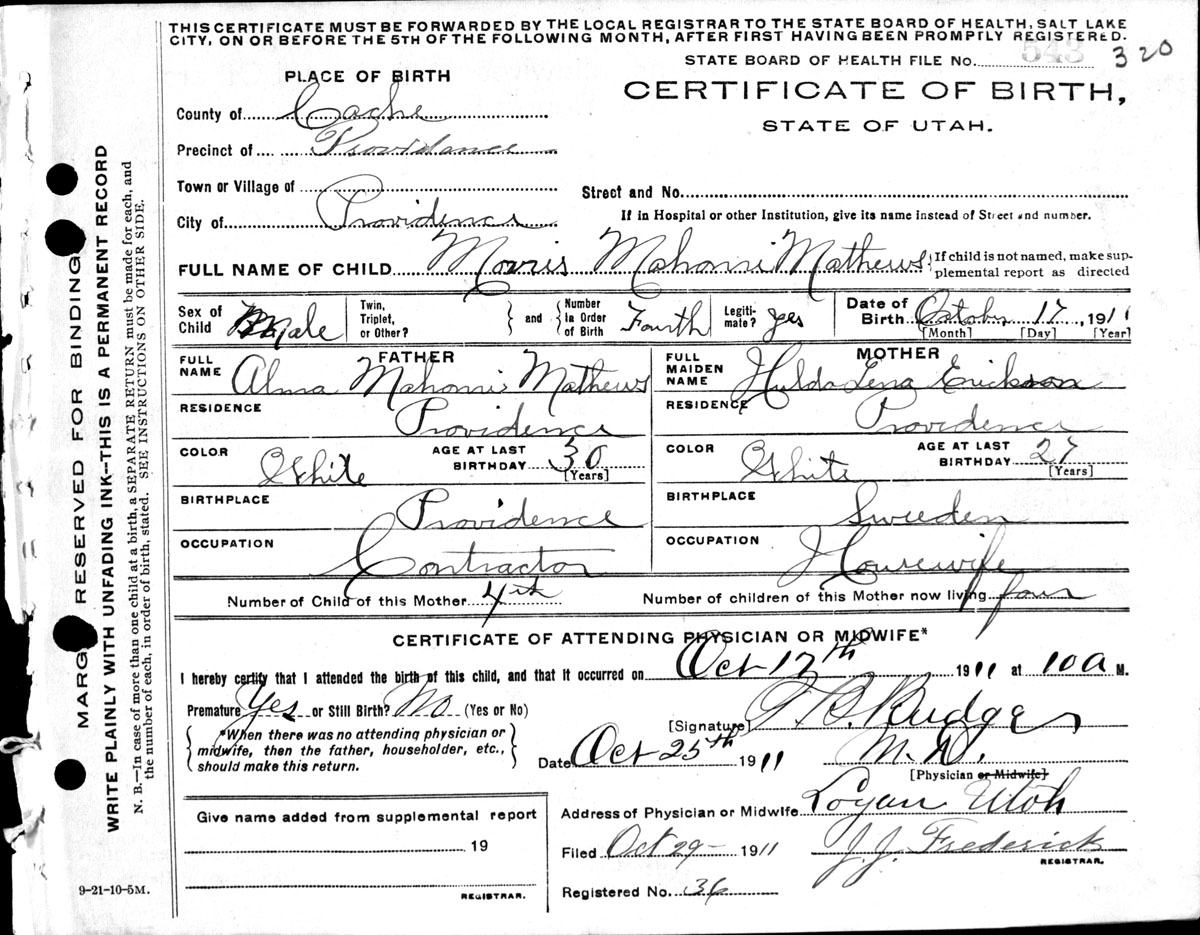 THIS CERTIFICATE MUST BE FORWARDED BY THE LOCAL REGISTRAR TO THE STATE BOARD OF HEALTH, SALT LAKE
CITY, ON OR BEFORE THE 5TH OF THE FOLLOWING MONTH, AFTER FIRST HAVING BEEN PROMPTLY REGISTERED.
STATE BOARD OF HEALTH FILE NO. 543 320
PLACE OF BIRTH
CERTIFICATE OF BIRTH,
STATE OF UTAH.
County of Cache
Precinct of Providance
Town or Village of
Street and No.
City of Providence
If in Hospital or other Institution, give its name instead of Street and number.
FULL NAME OF CHILD Morris Mahonri Mathews
If child is not named, make sup-
plemental report as directed
Sex of Child Male
Twin, Triplet, or Other?
and
Number in Order of Birth Fourth
Legiti-mate? yes
Date of Birth October 17, 1911
[Month] [Day] [Year]
FATHER
FULL NAME Alma Mahonri Mathews
RESIDENCE Providence
COLOR White
AGE AT LAST BIRTHDAY 30
[Years]
BIRTHPLACE Providence
OCCUPATION Contractor
MOTHER
FULL MAIDEN NAME Hulda Lena Erickson
RESIDENCE Providence
COLOR White
AGE AT LAST BIRTHDAY 27
[Years]
BIRTHPLACE Sweeden
OCCUPATION Housewife
Number of Child of this Mother 4th
Number of children of this Mother now living four
CERTIFICATE OF ATTENDING PHYSICIAN OR MIDWIFE*
I hereby certify that I attended the birth of this child, and that it occurred on Oct 17th 1911 at 10 a M.
Premature Yes or Still Birth? No (Yes or No)
[Signature] T. B. Budge
*When there was no attending physician or
midwife, then the father, householder, etc.,
should make this return.
Date Oct 25th 1911
M.D.
[Physician or Midwife]
Address of Physician or Midwife Logan Utah
Give name added from supplemental report
19
REGISTRAR.
Filed Oct 29- 1911
J.J. Frederick
REGISTRAR.
Registered No. 36
9-21-10-5M.
MARGIN RESERVED FOR BINDING
WRITE PLAINLY WITH UNFADING INK--THIS IS A PERMANENT RECORD
N. B.—In case of more than one child at a birth, a SEPARATE RETURN must be made for each, and
the number of each, in order of birth, stated. SEE INSTRUCTIONS ON OTHER SIDE.